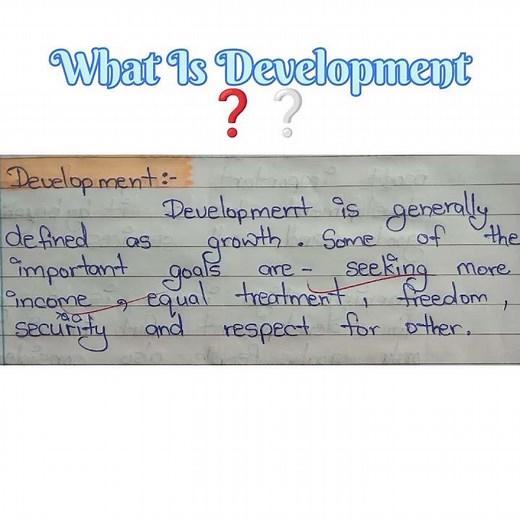 What Is Development
❓❔
Development:-
Development is generally
defined as growth. Some of the
important goals are - seeking more
income, equal treatment, freedom,
security and respect for other.